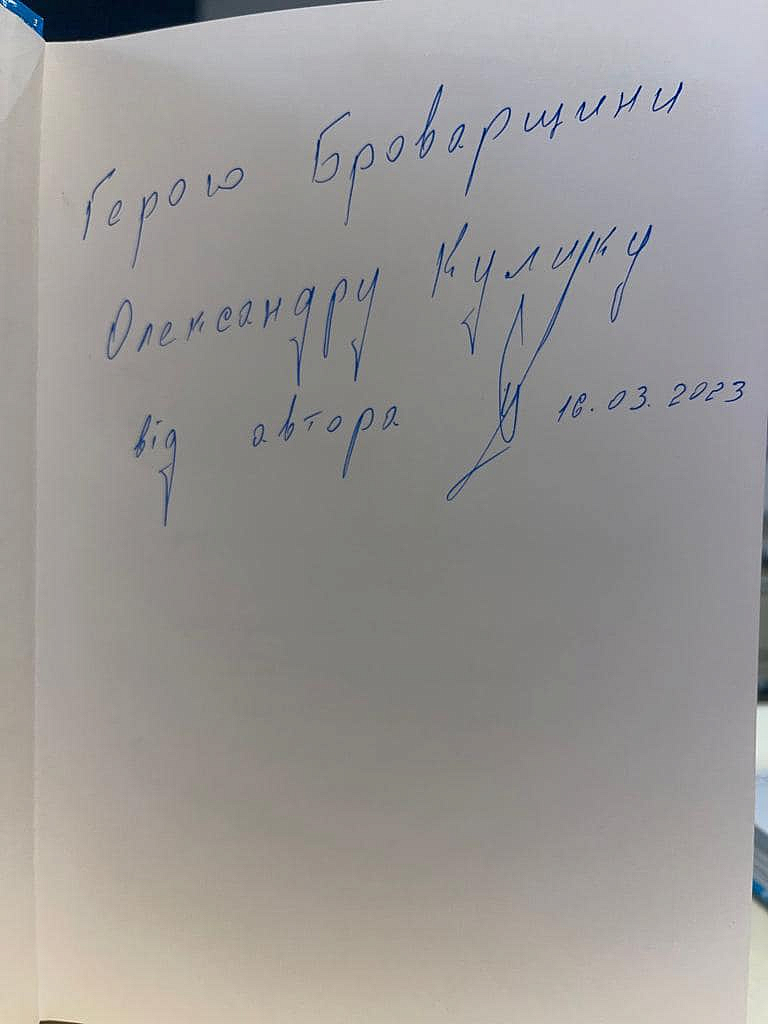 Герою Броварщини
Олександру Кулику
від автора 16.03.2023